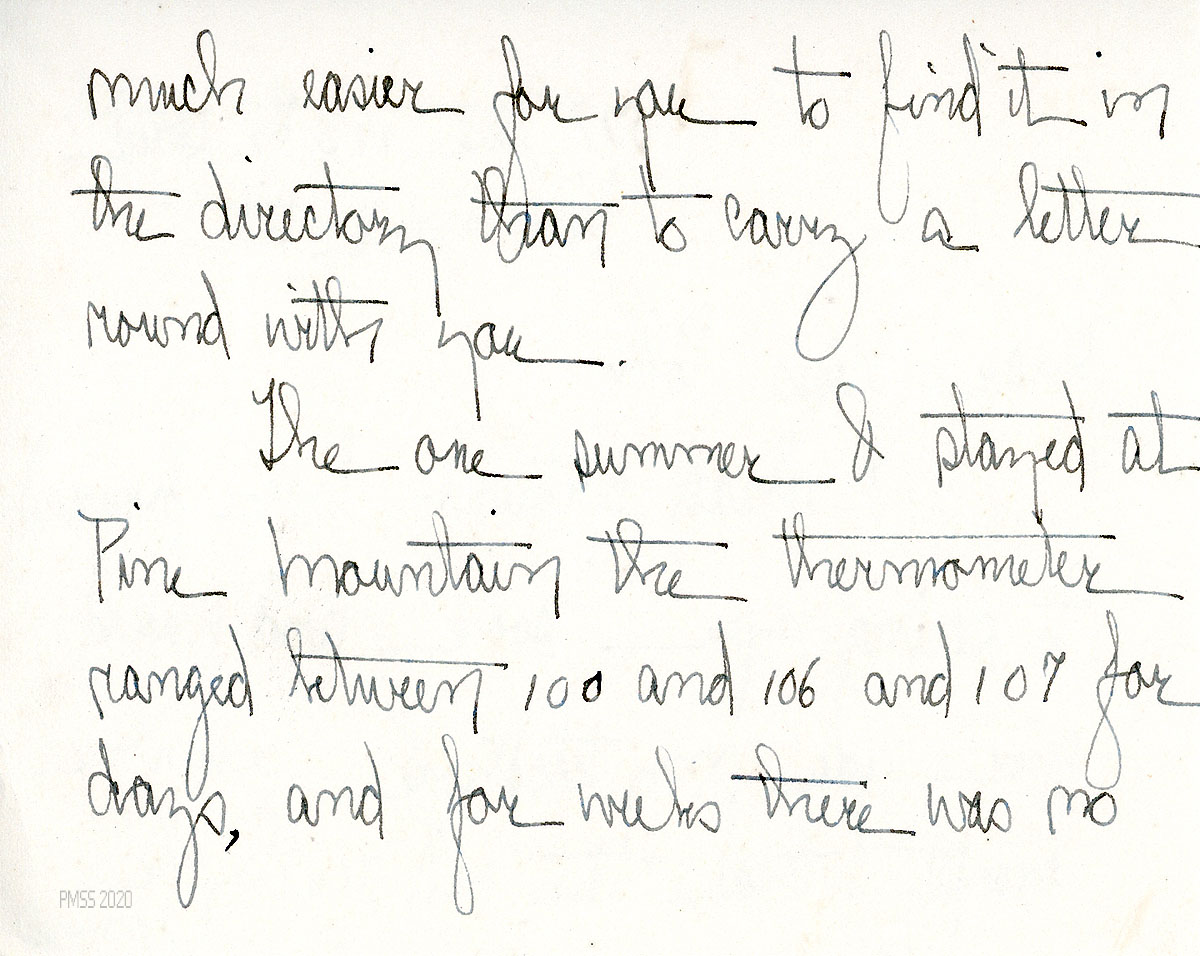 much easier for you to find it in
the directory than to carry a letter
round with you.
The one summer I stayed at
Pine Mountain the thermometer
ranged between 100 and 106 and 107 for
days, and for weeks there was no
PMSS 2020